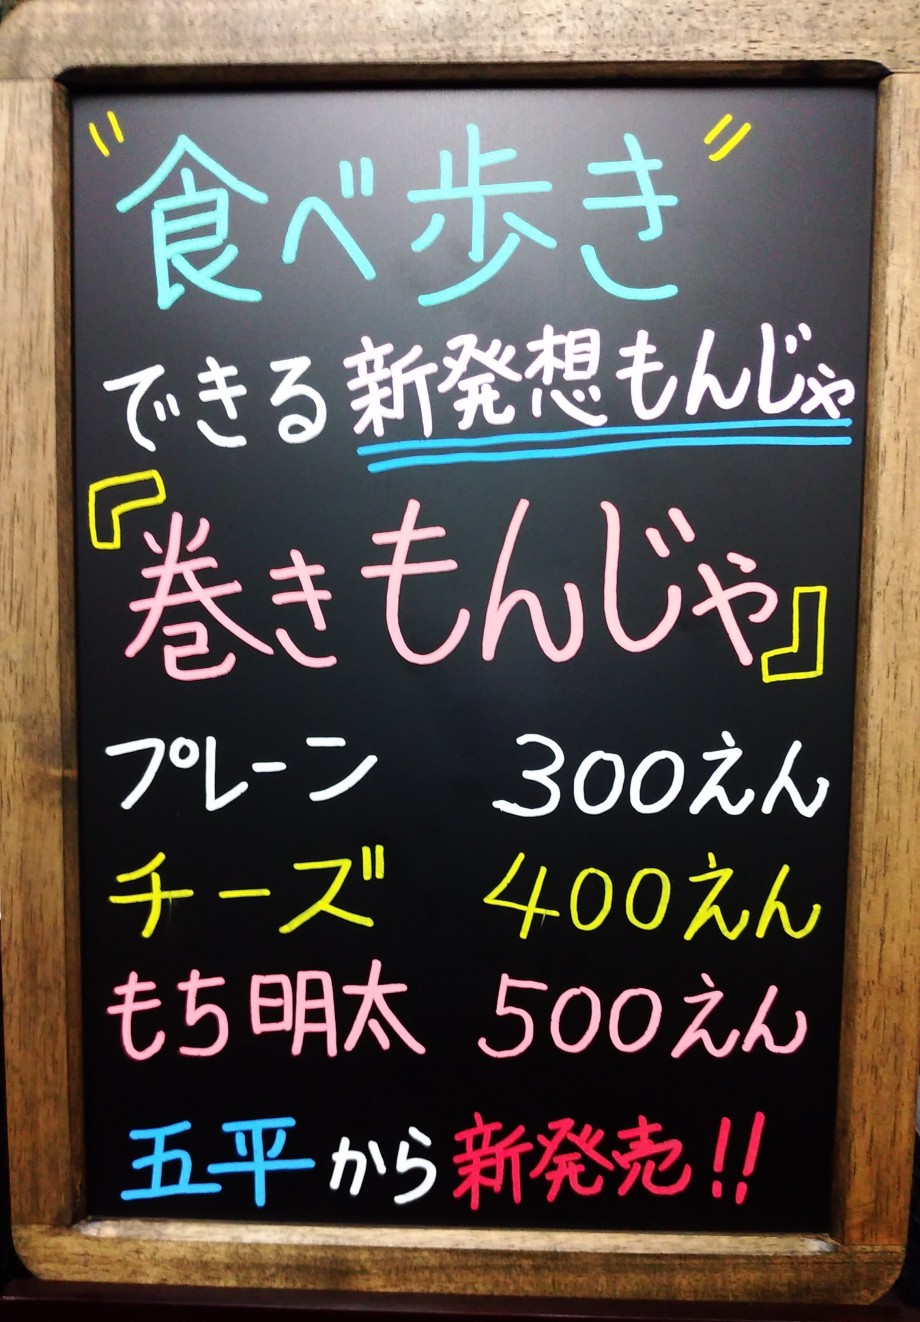 "食べ歩き"
できる新発想もんじゃ
『巻きもんじゃ』
プレーン 300えん
チーズ 400えん
もち明太 500えん
五平から新発売!!